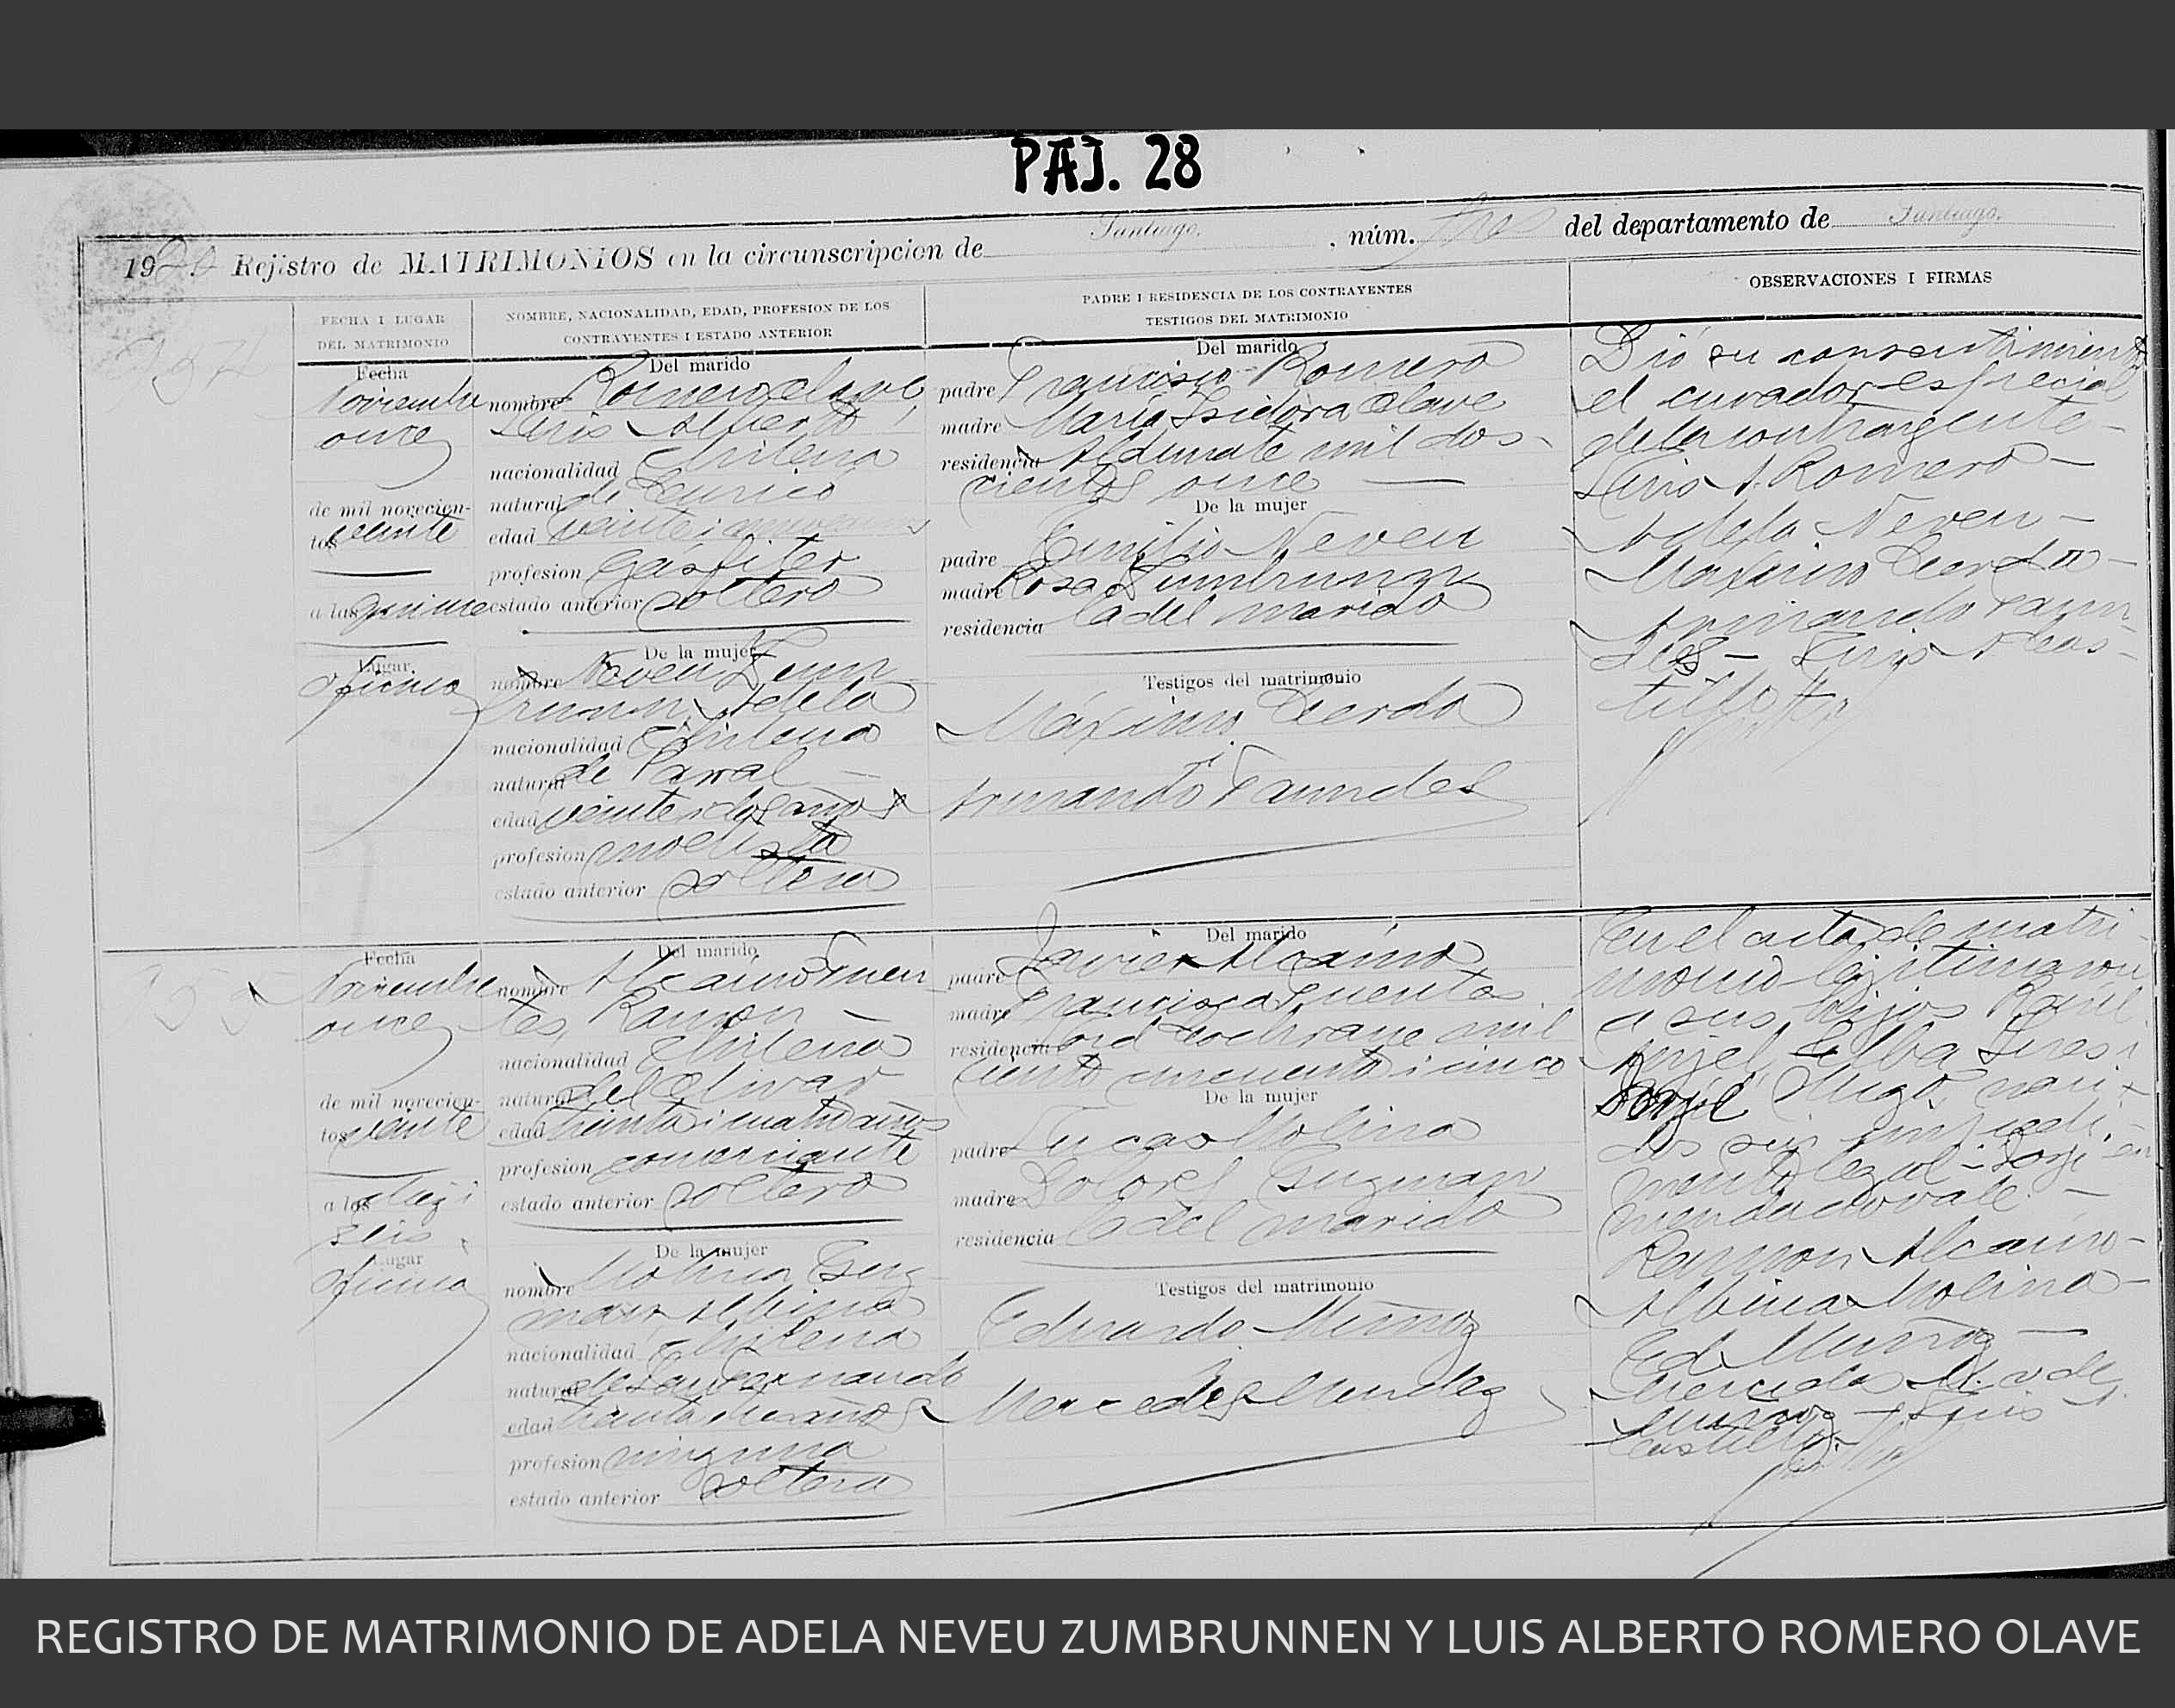 PAJ. 28
1920 Rejistro de MATRIMONIOS en la circunscripcion de Santiago, núm. tres del departamento de Santiago.
FECHA I LUGAR
DEL MATRIMONIO
NOMBRE, NACIONALIDAD, EDAD, PROFESION DE LOS
CONTRAYENTES I ESTADO ANTERIOR
PADRE I RESIDENCIA DE LOS CONTRAYENTES
TESTIGOS DEL MATRIMONIO
OBSERVACIONES I FIRMAS
Fecha
Noviembre
once
de mil novecien-
tos veinte
a las quince
Lugar
oficina
Del marido
nombre Romero Olave
Luis Alberto
nacionalidad chilena
natural de Curicó
edad veintei
profesion gásfiter
estado anterior soltero
De la mujer
nombre Neveu Zum
brunn, Adela
nacionalidad chilena
natural de Parral
edad veintidos años
profesion modista
estado anterior soltera
Del marido
padre Francisco Romero
madre María Isidora Olave
residencia Aldunate mil dos-
cientos once
De la mujer
padre Emilio Neveu
madre Rosa
residencia la del marido
Testigos del matrimonio
Máximo Cerda
i
Armando Faundes
Dió su consentimiento
el curador especial
de la contrayente -
Luis A. Romero -
Adela Neveu -
Máximo Cerda -
Armando Faun
des - Luis A. Cas-
tillo
Fecha
Noviembre
once
de mil novecien-
tos veinte
a las diezi
seis.
Lugar
oficina
Del marido
nombre Alcaíno Fuen
tes, Ramon -
nacionalidad chilena
natural del Olivar
edad treinta i cuatro años
profesion comerciante
estado anterior soltero
De la mujer
nombre Molina Guz-
man Albina
nacionalidad chilena
natural de San Fernando
edad treinta años
profesion ninguna
estado anterior soltera
Del marido
padre Javier Alcaíno
madre Francisca Fuentes
residencia Lord Cochrane mil
ciento cincuenta i cinco
De la mujer
padre Lucas Molina
madre Dolores Guzman
residencia la del marido
Testigos del matrimonio
Eduardo Muñoz
i
Mercedes Mendez
En el acta de matri-
monio lejitimaron
a sus hijos Raúl
Anjel, Elba Teresa i
Hugo, naci-
dos sin impedi-
mento legal -
mendado vale. -
Ramon Alcaíno -
Albina Molina -
Ed. Muñoz -
Mercedes M. v de
Muñoz - Luis A.
Castillo
REGISTRO DE MATRIMONIO DE ADELA NEVEU ZUMBRUNNEN Y LUIS ALBERTO ROMERO OLAVE